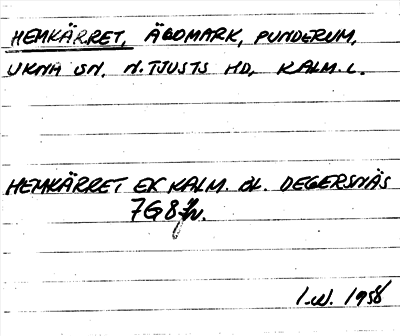 HEMKÄRRET, ÄGOMARK, PUNDERUM,
UKNA SN. N. TJUSTS HD, KALM. L.
HEMKÄRRET EK KALM. BL. DEGERSNÄS
7G8
1956